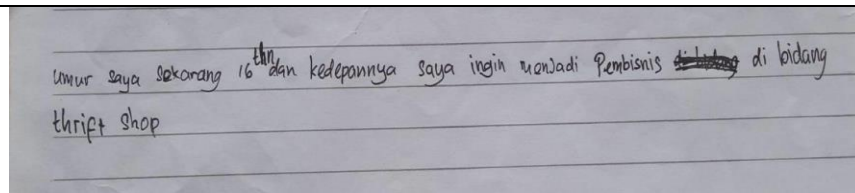 umur saya sekarang 16 thn dan kedepannya saya ingin menjadi Pembisnis di bidang
thrift shop